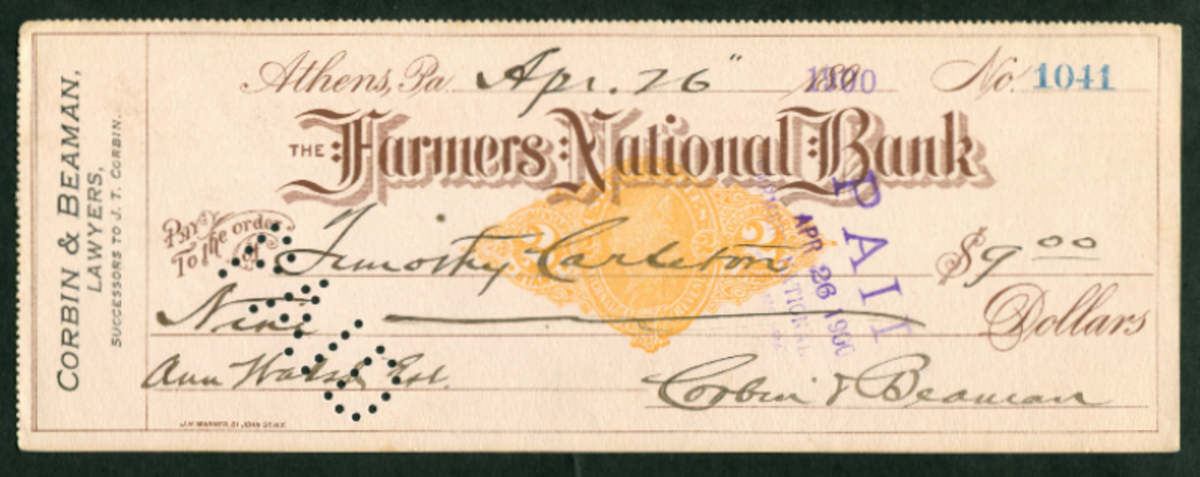 CORBIN & BEAMAN,
LAWYERS,
SUCCESSORS TO J. T. CORBIN.
Athens, Pa Apr. 26" 1900 No. 1041
THE Farmers National Bank
Pay To the order of Timothy Carleton $9 00
Nine Dollars
Ann Est.
Corbin & Beaman
J.H. WARNER, 51 JOHN ST. N.Y.
PAID
APR 26 1900
NATIONAL
2 2